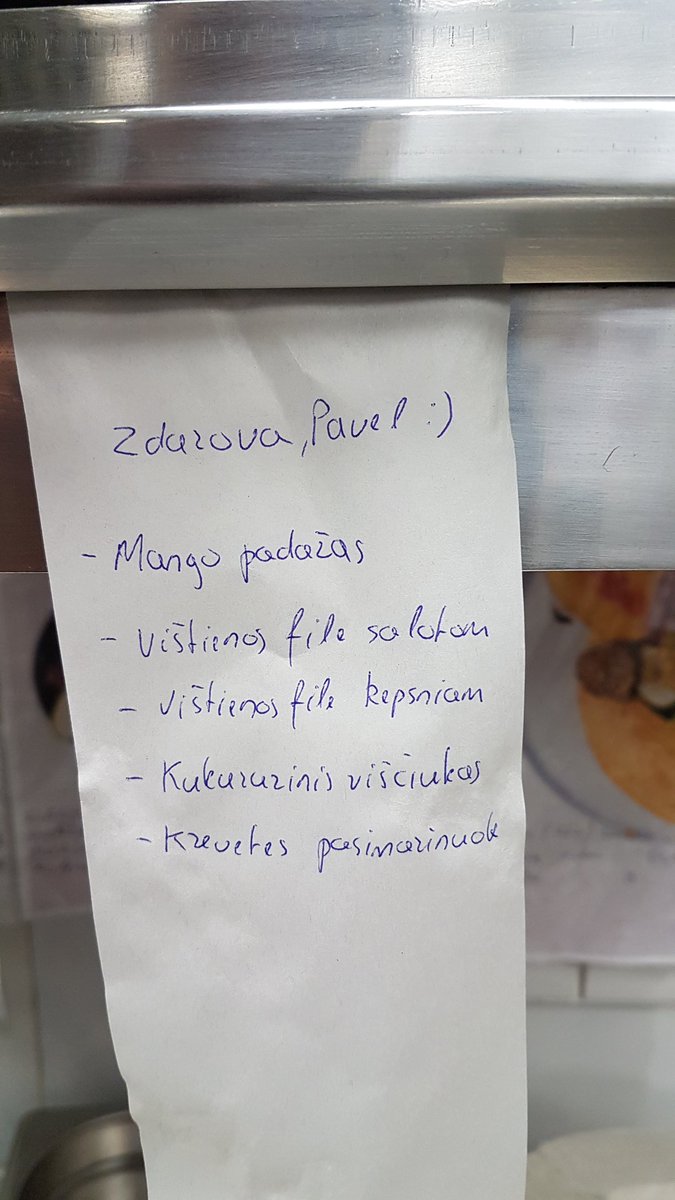 Zdarova, Pavel :)
- Mango padažas
- Vištienos file salotom
- Vištienos file kepsniam
- Kukuruzinis viščiukas
- Krevetes pasimarinuok